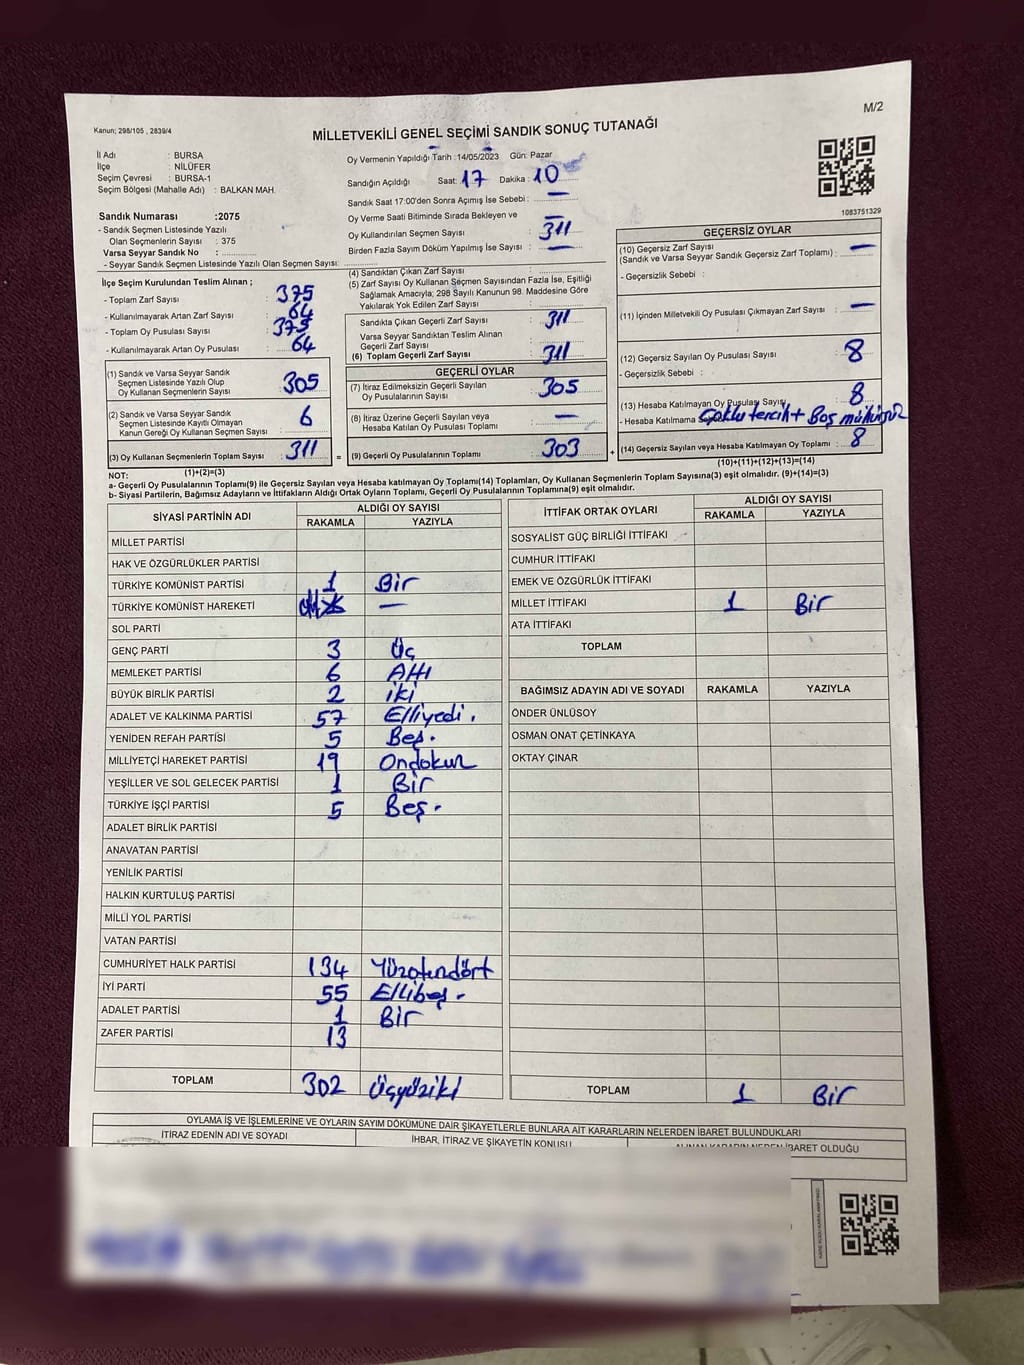 M/2
Kanun; 298/105 , 2839/4
MİLLETVEKİLİ GENEL SEÇİMİ SANDIK SONUÇ TUTANAĞI
İl Adı : BURSA
İlçe : NİLÜFER
Seçim Çevresi : BURSA-1
Seçim Bölgesi (Mahalle Adı) : BALKAN MAH.
Oy Vermenin Yapıldığı Tarih :14/05/2023 Gün: Pazar
Sandığın Açıldığı Saat: 17 Dakika : 10
Sandık Saat 17:00'den Sonra Açımış İse Sebebi : —
Oy Verme Saati Bitiminde Sırada Bekleyen ve
Oy Kullandırılan Seçmen Sayısı : 311
Birden Fazla Sayım Döküm Yapılmış İse Sayısı : —
1083751329
Sandık Numarası :2075
- Sandık Seçmen Listesinde Yazılı
Olan Seçmenlerin Sayısı : 375
Varsa Seyyar Sandık No :
- Seyyar Sandık Seçmen Listesinde Yazılı Olan Seçmen Sayısı:
İlçe Seçim Kurulundan Teslim Alınan ;
- Toplam Zarf Sayısı : 375
- Kullanılmayarak Artan Zarf Sayısı : 64
- Toplam Oy Pusulası Sayısı : 375
- Kullanılmayarak Artan Oy Pusulası : 64
(1) Sandık ve Varsa Seyyar Sandık
Seçmen Listesinde Yazılı Olup
Oy Kullanan Seçmenlerin Sayısı : 305
(2) Sandık ve Varsa Seyyar Sandık
Seçmen Listesinde Kayıtlı Olmayan
Kanun Gereği Oy Kullanan Seçmen Sayısı : 6
(3) Oy Kullanan Seçmenlerin Toplam Sayısı : 311
(1)+(2)=(3)
(4) Sandıktan Çıkan Zarf Sayısı :
(5) Zarf Sayısı Oy Kullanan Seçmen Sayısından Fazla İse, Eşitliği
Sağlamak Amacıyla; 298 Sayılı Kanunun 98. Maddesine Göre
Yakılarak Yok Edilen Zarf Sayısı :
Sandıkta Çıkan Geçerli Zarf Sayısı : 311
Varsa Seyyar Sandıktan Teslim Alınan
Geçerli Zarf Sayısı :
(6) Toplam Geçerli Zarf Sayısı : 311
GEÇERLİ OYLAR
(7) İtiraz Edilmeksizin Geçerli Sayılan
Oy Pusulalarının Sayısı : 305
(8) İtiraz Üzerine Geçerli Sayılan veya
Hesaba Katılan Oy Pusulası Toplamı : —
= (9) Geçerli Oy Pusulalarının Toplamı : 303
GEÇERSİZ OYLAR
(10) Geçersiz Zarf Sayısı
(Sandık ve Varsa Seyyar Sandık Geçersiz Zarf Toplamı) : —
- Geçersizlik Sebebi :
(11) İçinden Milletvekili Oy Pusulası Çıkmayan Zarf Sayısı : —
(12) Geçersiz Sayılan Oy Pusulası Sayısı : 8
- Geçersizlik Sebebi :
(13) Hesaba Katılmayan Oy Pusulası Sayısı : 8
- Hesaba Katılmama Çoklu tercih + Boş mühür
+ (14) Geçersiz Sayılan veya Hesaba Katılmayan Oy Toplamı : 8
(10)+(11)+(12)+(13)=(14)
NOT:
a- Geçerli Oy Pusulalarının Toplamı(9) ile Geçersiz Sayılan veya Hesaba katılmayan Oy Toplamı(14) Toplamları, Oy Kullanan Seçmenlerin Toplam Sayısına(3) eşit olmalıdır. (9)+(14)=(3)
b- Siyasi Partilerin, Bağımsız Adayların ve İttifakların Aldığı Ortak Oyların Toplamı, Geçerli Oy Pusulalarının Toplamına(9) eşit olmalıdır.
SİYASİ PARTİNİN ADI ALDIĞI OY SAYISI
RAKAMLA YAZIYLA
MİLLET PARTİSİ
HAK VE ÖZGÜRLÜKLER PARTİSİ
TÜRKİYE KOMÜNİST PARTİSİ 1 Bir
TÜRKİYE KOMÜNİST HAREKETİ —
SOL PARTİ
GENÇ PARTİ 3 Üç
MEMLEKET PARTİSİ 6 Altı
BÜYÜK BİRLİK PARTİSİ 2 iki
ADALET VE KALKINMA PARTİSİ 57 Elliyedi.
YENİDEN REFAH PARTİSİ 5 Beş.
MİLLİYETÇİ HAREKET PARTİSİ 19 Ondokuz
YEŞİLLER VE SOL GELECEK PARTİSİ 1 Bir
TÜRKİYE İŞÇİ PARTİSİ 5 Beş.
ADALET BİRLİK PARTİSİ
ANAVATAN PARTİSİ
YENİLİK PARTİSİ
HALKIN KURTULUŞ PARTİSİ
MİLLİ YOL PARTİSİ
VATAN PARTİSİ
CUMHURİYET HALK PARTİSİ 134 Yüzotuzdört
İYİ PARTİ 55 Ellibeş.
ADALET PARTİSİ 1 Bir
ZAFER PARTİSİ 13
TOPLAM 302 Üçyüziki
İTTİFAK ORTAK OYLARI ALDIĞI OY SAYISI
RAKAMLA YAZIYLA
SOSYALİST GÜÇ BİRLİĞİ İTTİFAKI
CUMHUR İTTİFAKI
EMEK VE ÖZGÜRLÜK İTTİFAKI
MİLLET İTTİFAKI 1 Bir
ATA İTTİFAKI
TOPLAM
BAĞIMSIZ ADAYIN ADI VE SOYADI RAKAMLA YAZIYLA
ÖNDER ÜNLÜSOY
OSMAN ONAT ÇETİNKAYA
OKTAY ÇINAR
TOPLAM 1 Bir
OYLAMA İŞ VE İŞLEMLERİNE VE OYLARIN SAYIM DÖKÜMÜNE DAİR ŞİKAYETLERLE BUNLARA AİT KARARLARIN NELERDEN İBARET BULUNDUKLARI
İTİRAZ EDENİN ADI VE SOYADI İHBAR, İTİRAZ VE ŞİKAYETİN KONUSU ALINAN KARARIN NEDEN İBARET OLDUĞU